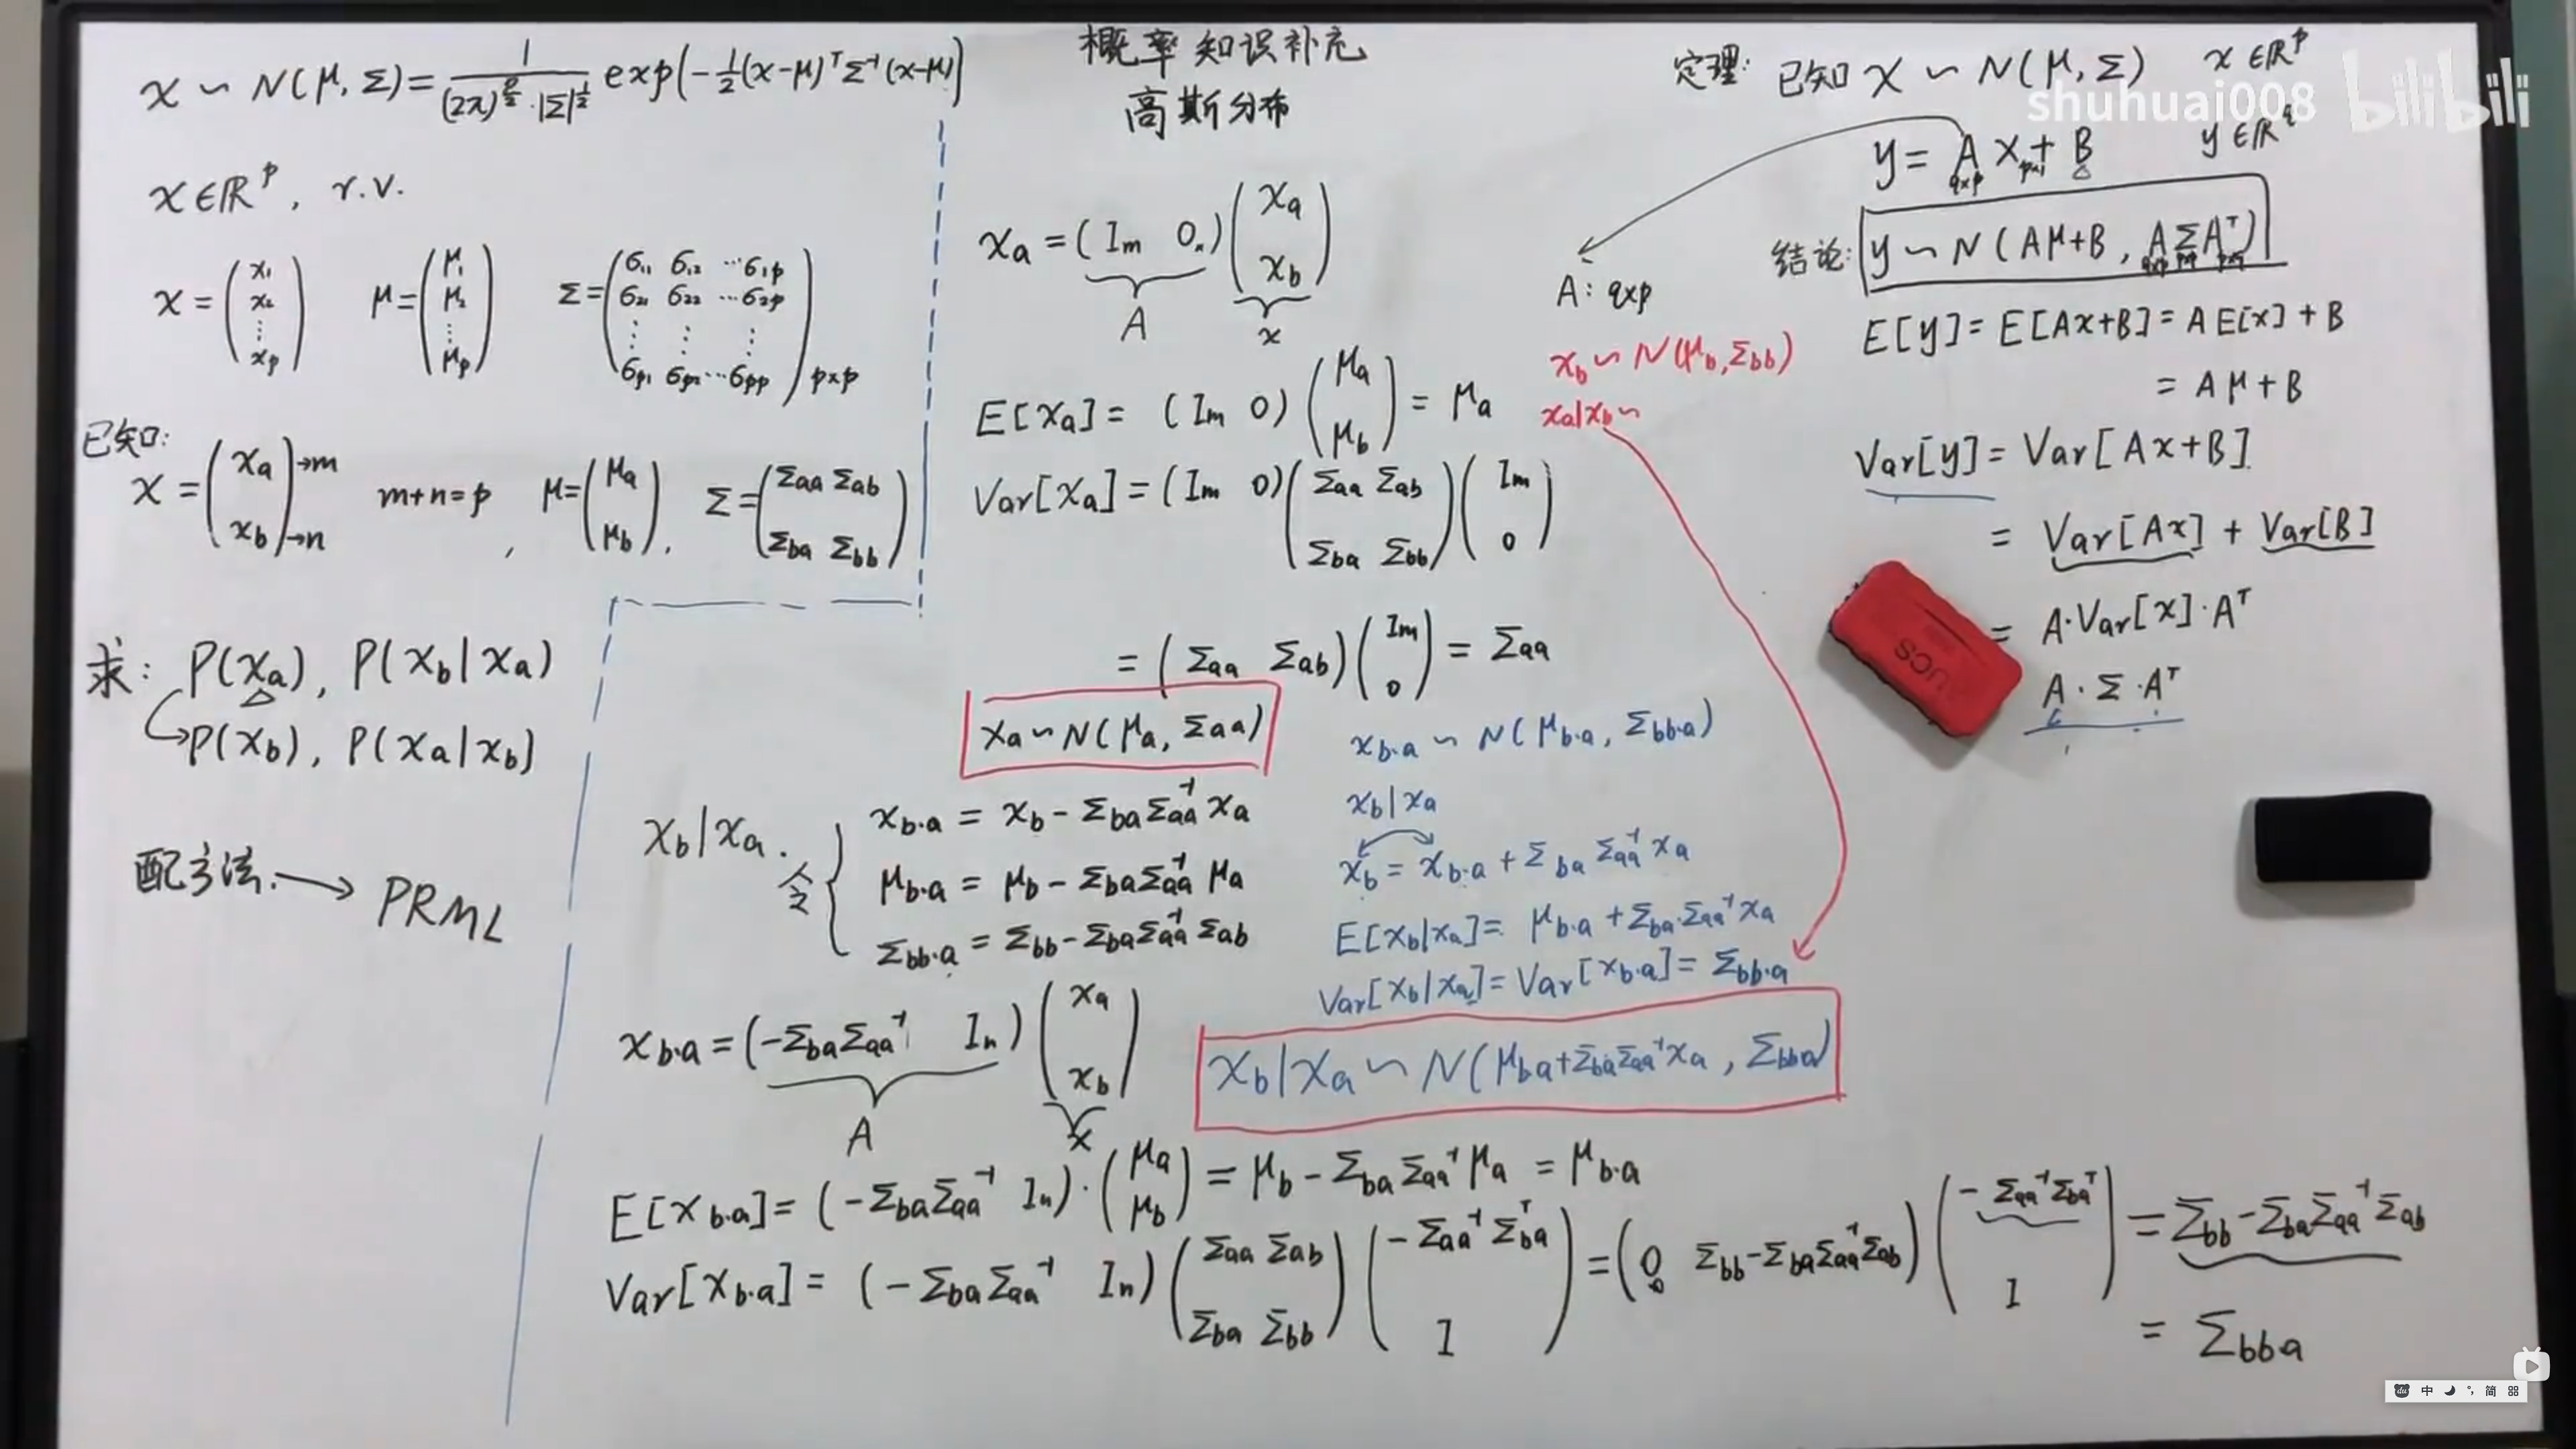 x ~ N(μ, Σ) = 1/((2π)^{p/2}·|Σ|^{1/2}) exp(-½(x-μ)ᵀΣ⁻¹(x-μ))
x∈ℝᵖ, r.v.
x = (x₁ x₂ ⋮ xₚ) μ = (μ₁ μ₂ ⋮ μₚ) Σ = (σ₁₁ σ₁₂ ⋯ σ₁ₚ
σ₂₁ σ₂₂ ⋯ σ₂ₚ
⋮ ⋮ ⋮
σₚ₁ σₚ₂ ⋯ σₚₚ)_{p×p}
已知:
x = (x_a →m
x_b →n) m+n=p, μ = (μ_a
μ_b), Σ = (Σ_aa Σ_ab
Σ_ba Σ_bb)
求: P(x_a), P(x_b|x_a)
P(x_b), P(x_a|x_b)
配方法. → PRML
概率知识补充
高斯分布
x_a = (I_m 0_n) (x_a
x_b)
A x
E[x_a] = (I_m 0) (μ_a
μ_b) = μ_a
Var[x_a] = (I_m 0) (Σ_aa Σ_ab
Σ_ba Σ_bb) (I_m
0)
= (Σ_aa Σ_ab) (I_m
0) = Σ_aa
x_a ~ N(μ_a, Σ_aa)
x_b|x_a. 令 { x_{b·a} = x_b - Σ_ba Σ_aa⁻¹ x_a
μ_{b·a} = μ_b - Σ_ba Σ_aa⁻¹ μ_a
Σ_{bb·a} = Σ_bb - Σ_ba Σ_aa⁻¹ Σ_ab
x_{b·a} = (-Σ_ba Σ_aa⁻¹ I_n) (x_a
x_b)
A x
E[x_{b·a}] = (-Σ_ba Σ_aa⁻¹ I_n)·(μ_a
μ_b) = μ_b - Σ_ba Σ_aa⁻¹ μ_a = μ_{b·a}
Var[x_{b·a}] = (-Σ_ba Σ_aa⁻¹ I_n) (Σ_aa Σ_ab
Σ_ba Σ_bb) (-Σ_aa⁻¹ Σ_baᵀ
I) = (0 Σ_bb - Σ_ba Σ_aa⁻¹ Σ_ab) (-Σ_aa⁻¹ Σ_baᵀ
I) = Σ_bb - Σ_ba Σ_aa⁻¹ Σ_ab
= Σ_bba
x_{b·a} ~ N(μ_{b·a}, Σ_{bb·a})
x_b|x_a
x_b = x_{b·a} + Σ_ba Σ_aa⁻¹ x_a
E[x_b|x_a] = μ_{b·a} + Σ_ba·Σ_aa⁻¹ x_a
Var[x_b|x_a] = Var[x_{b·a}] = Σ_{bb·a}
x_b|x_a ~ N(μ_{ba} + Σ_ba Σ_aa⁻¹ x_a, Σ_bba)
A: q×p
x_b ~ N(μ_b, Σ_bb)
x_a|x_b ~
定理: 已知 x ~ N(μ, Σ) x∈ℝᵖ
y = A_{q×p} x_{p×1} + B y∈ℝ^q
结论: y ~ N(Aμ+B, A_{q×p} Σ_{p×p} Aᵀ_{p×q})
E[y] = E[Ax+B] = A E[x] + B
= Aμ + B
Var[y] = Var[Ax+B]
= Var[Ax] + Var[B]
= A·Var[x]·Aᵀ
A·Σ·Aᵀ
shuhuai008 bilibili
中 简